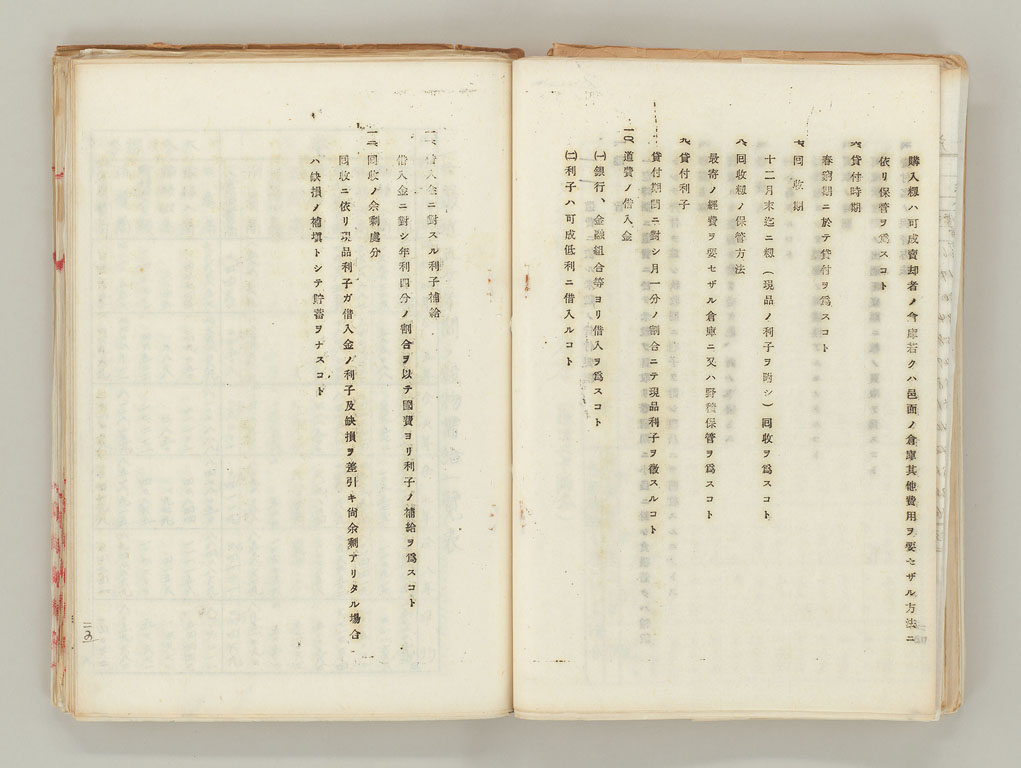 購入籾ハ可成賣却者ノ倉庫若クハ邑面ノ倉庫其他費用ヲ要セザル方法ニ
依リ保管ヲ爲スコト
六、貸付時期
春窮期ニ於テ貸付ヲ爲スコト
七、回收期
十二月末迄ニ籾(現品ノ利子ヲ附シ)回收ヲ爲スコト
八、回收籾ノ保管方法
最寄ノ經費ヲ要セザル倉庫ニ又ハ野積保管ヲ爲スコト
九、貸付利子
貸付期間ニ對シ月一分ノ割合ニテ現品利子ヲ徵スルコト
一〇、道費ノ借入金
(一)銀行、金融組合等ヨリ借入ヲ爲スコト
(二)利子ハ可成低利ニ借入ルコト
一一、借入金ニ對スル利子補給
借入金ニ對シ年利四分ノ割合ヲ以テ國費ヨリ利子ノ補給ヲ爲スコト
一二、回收ノ余剩處分
回收ニ依リ現品利子ガ借入金ノ利子及缺損ヲ差引キ尙余剩アリタル場合
ハ缺損ノ補塡トシテ貯蓄ヲナスコト